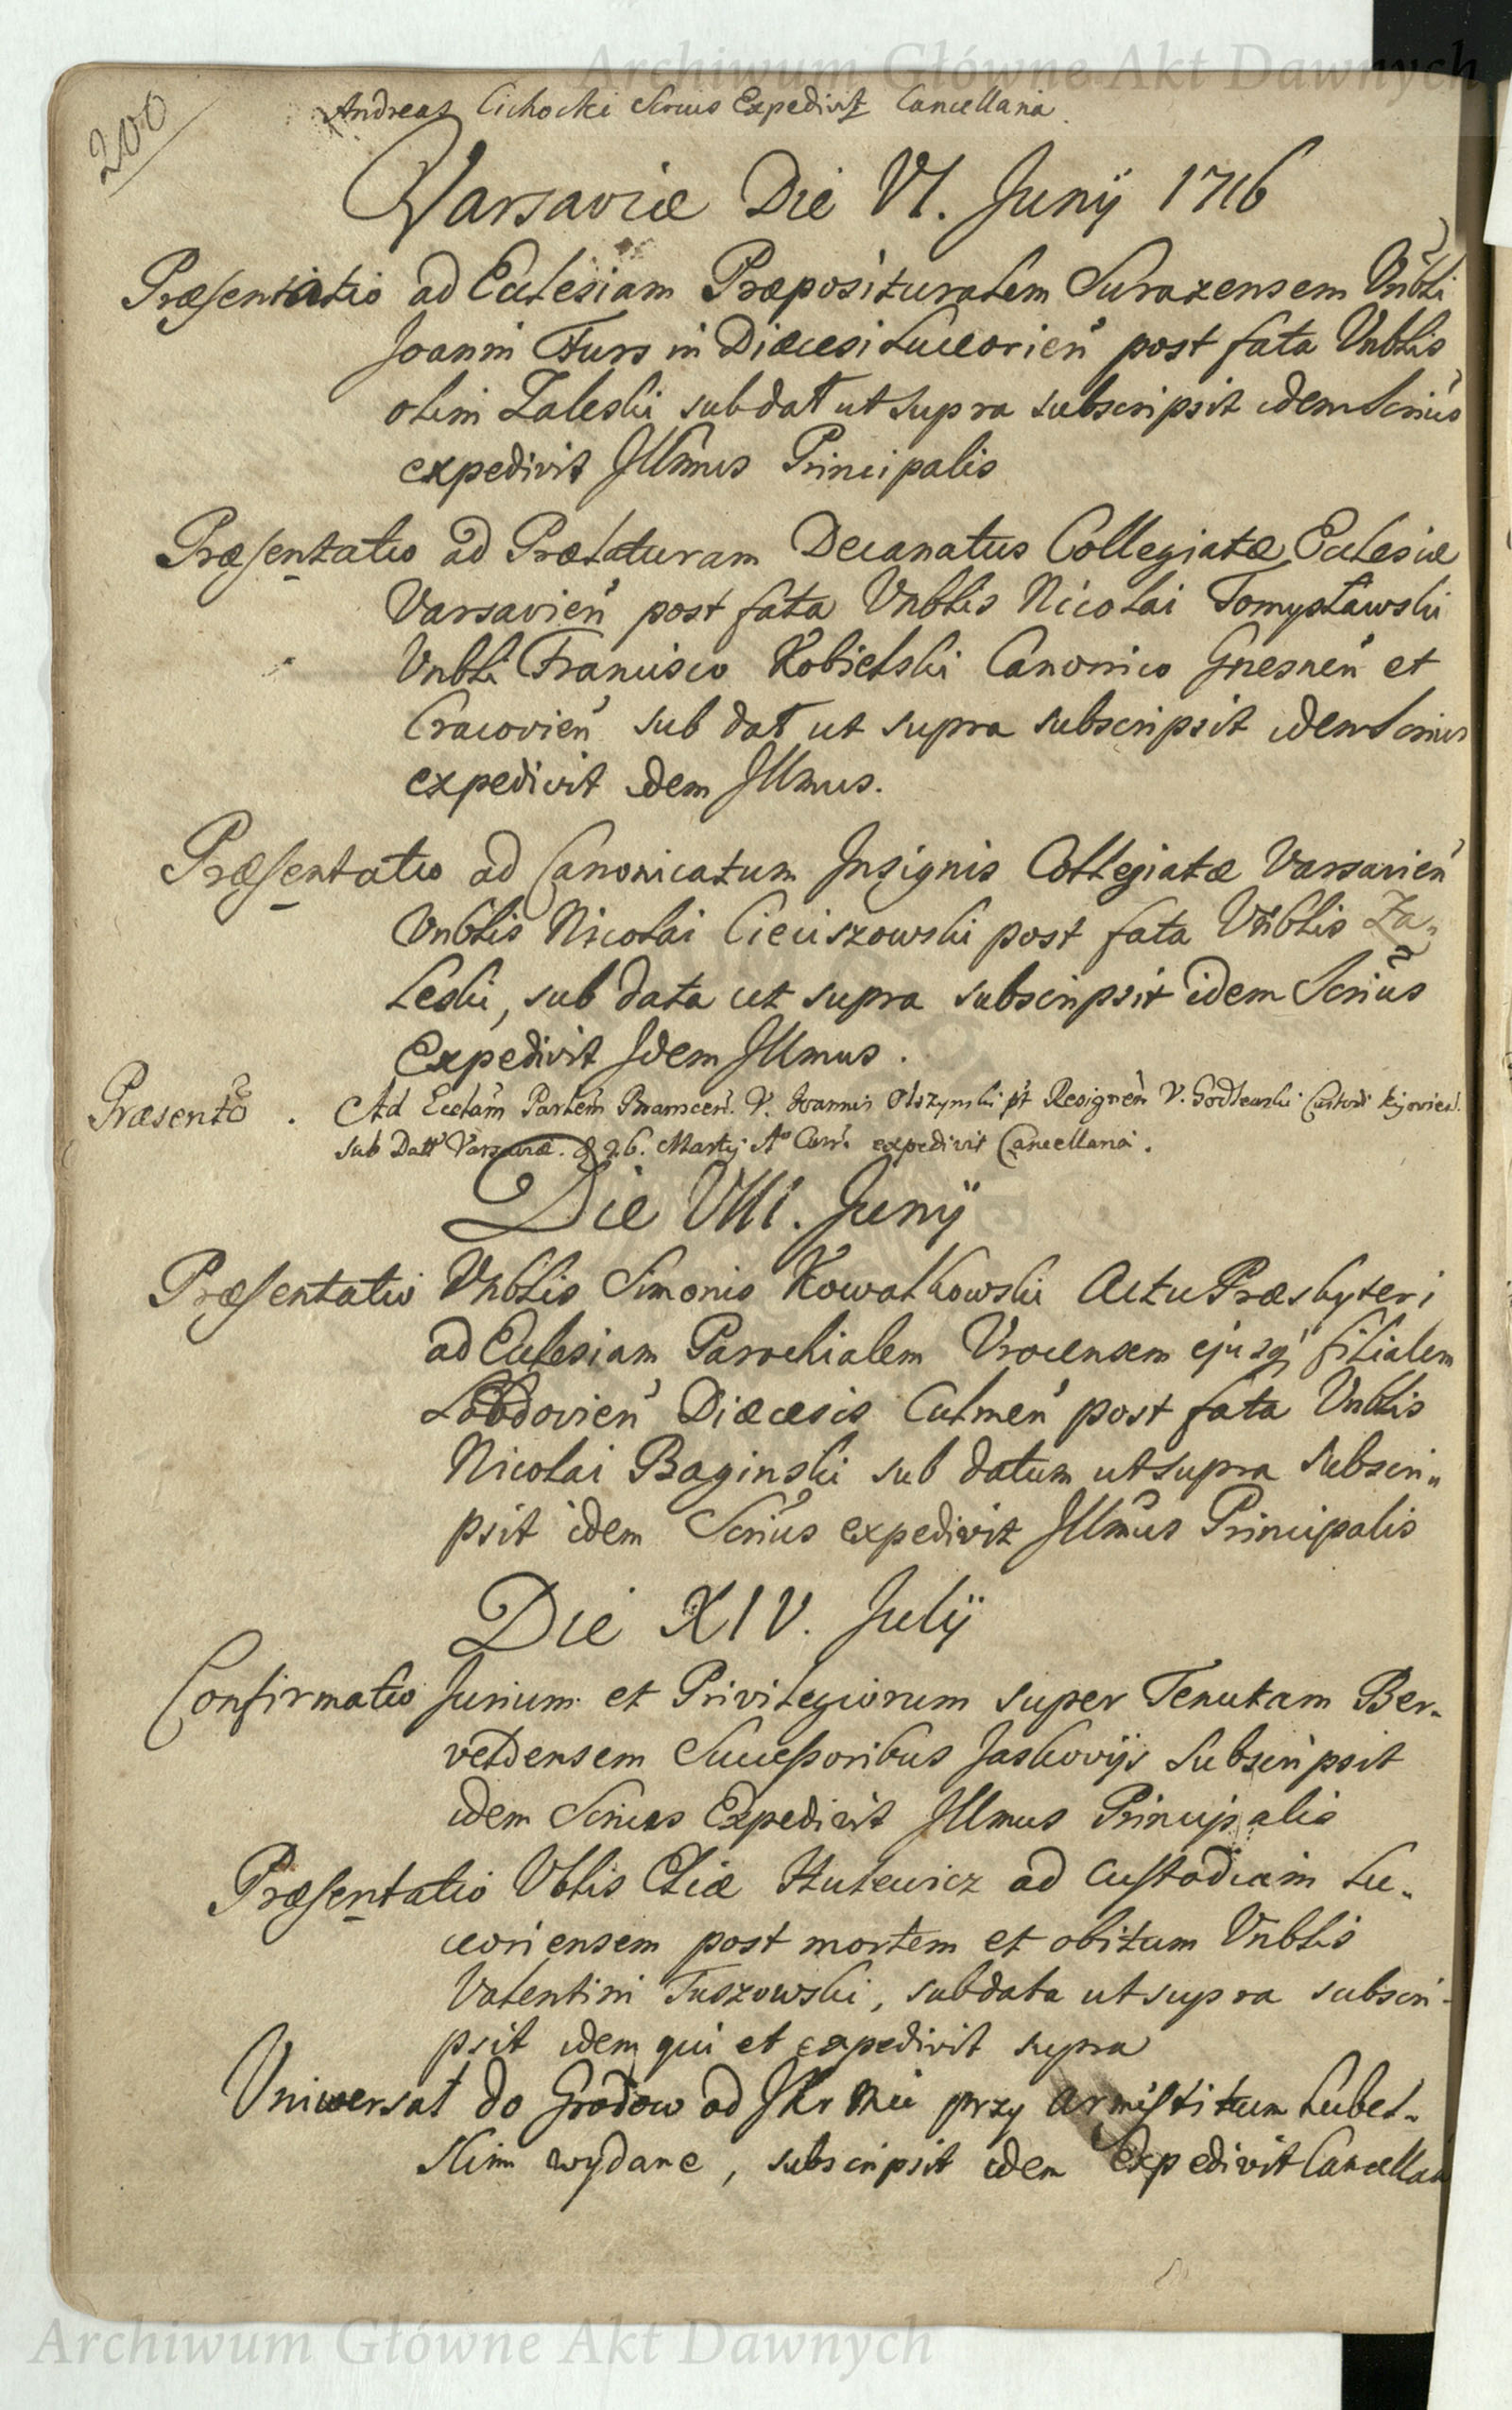 Archiwum Główne Akt Dawnych
200
Andreas Cichocki Scrius Expedivit Cancellaria.
Varsaviæ Die VI. Junÿ 1716
Præsentatio ad Ecclesiam Præposituralem Surazensem Vnbli
Joanni Furs in Diæcesi Luceorien̄ post fata Vnblis
olim Zaleski sub dat̄ ut supra subscripsit idem Scrius
expedivit Jllm̄us Principalis
Præsentatio ad Prælaturam Decanatus Collegiatæ Ecclesiæ
Varsavien̄ post fata Vnblis Nicolai Tomysławski
Vnbli Francisco Kobielski Canonico Gnesnen̄ et
Cracovien̄ sub dat̄ ut supra subscripsit idem Scrius
expedivit idem Jllmus.
Præsentatio ad Canonicatum Jnsignis Collegiatæ Varsavien̄
Vnblis Nicolai Cieciszowski post fata Vnblis Za„
Leski, sub data ut supra subscripsit idem Scrius
Expedivit Jdem Jllmus.
Præsento . Ad Ecclam Parlem Branscen. V. Joannis Olszynski pt Resignen V. Godlewski Custodi Kijovien.
sub Datt Varsaviæ. d 26. Martij Ao Curr. expedivit Cancellaria.
Die VIII. Junÿ
Præsentatio Vnblis Simonis Kowalkowski Actu Præsbyteri
ad Ecclesiam Parochialem Vrocensem ejusq̨ filialem
Lobdovien̄ Diæcesis Culmen̄ post fata Vnblis
Nicolai Baginski sub datum ut supra subscri„
psit idem Scrius expedivit Jllm̄us Principalis
Die XIV. Julÿ
Confirmatio Jurium et Privilegiorum super Tenutam Ber„
veldensem Successoribus Jaskovijs Subscripsit
idem Scrius Expedivit Jllmus Principalis
Præsentatio Vblis Eliæ Hulewicz ad Custodiam Lu„
ceoriensem post mortem et obitum Vnblis
Valentini Tuszowski, sub data ut supra subscri-
psit idem qui et expedivit supra
Uniwersał do Grodow od JKr Mci przy armistitium Lubel„
skim wydane, subscripsit idem Expedivit Cancellari
Archiwum Główne Akt Dawnych